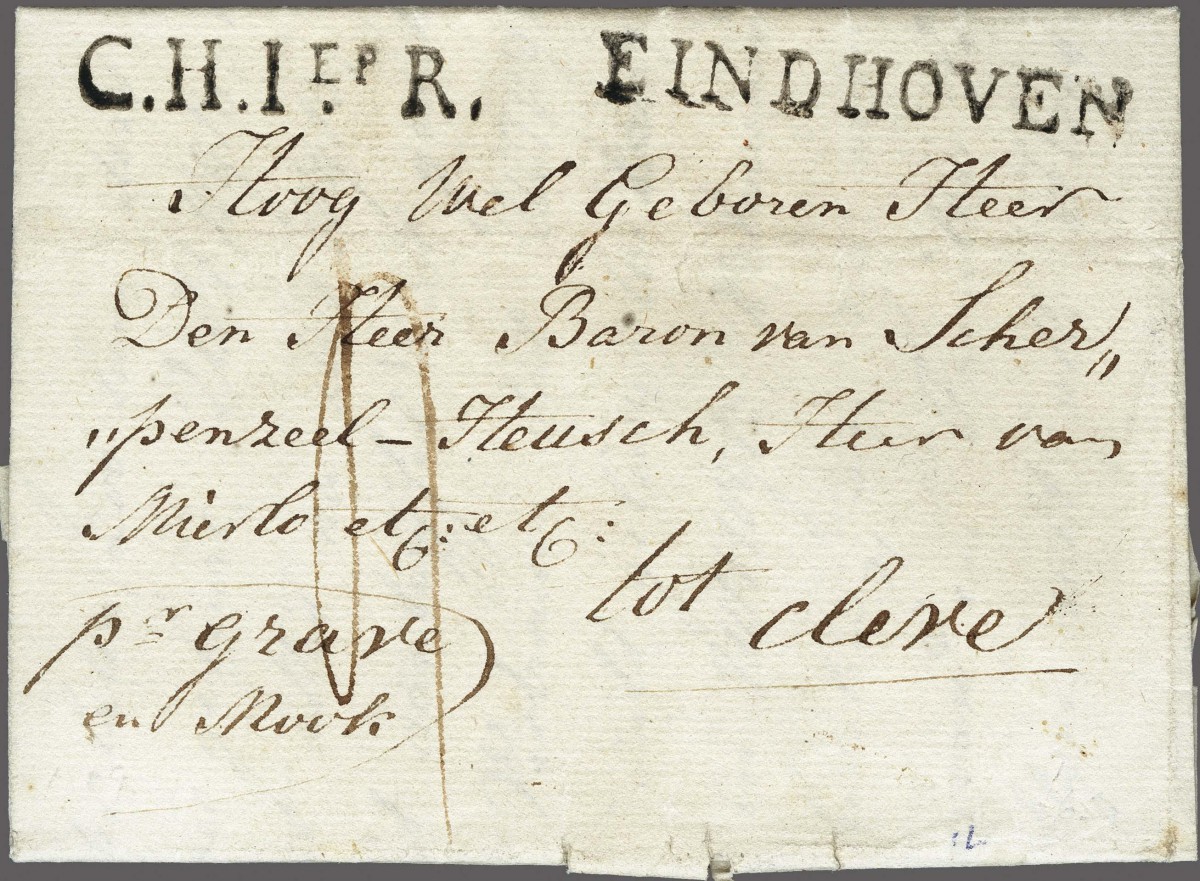 C.H.I.ER R. EINDHOVEN
Hoog Wel Geboren Heer
Den Heer Baron van Scher„
„penzeel - Heusch, Heer van
Mierlo etc: etc:
tot cleve
pr grave
en Mook